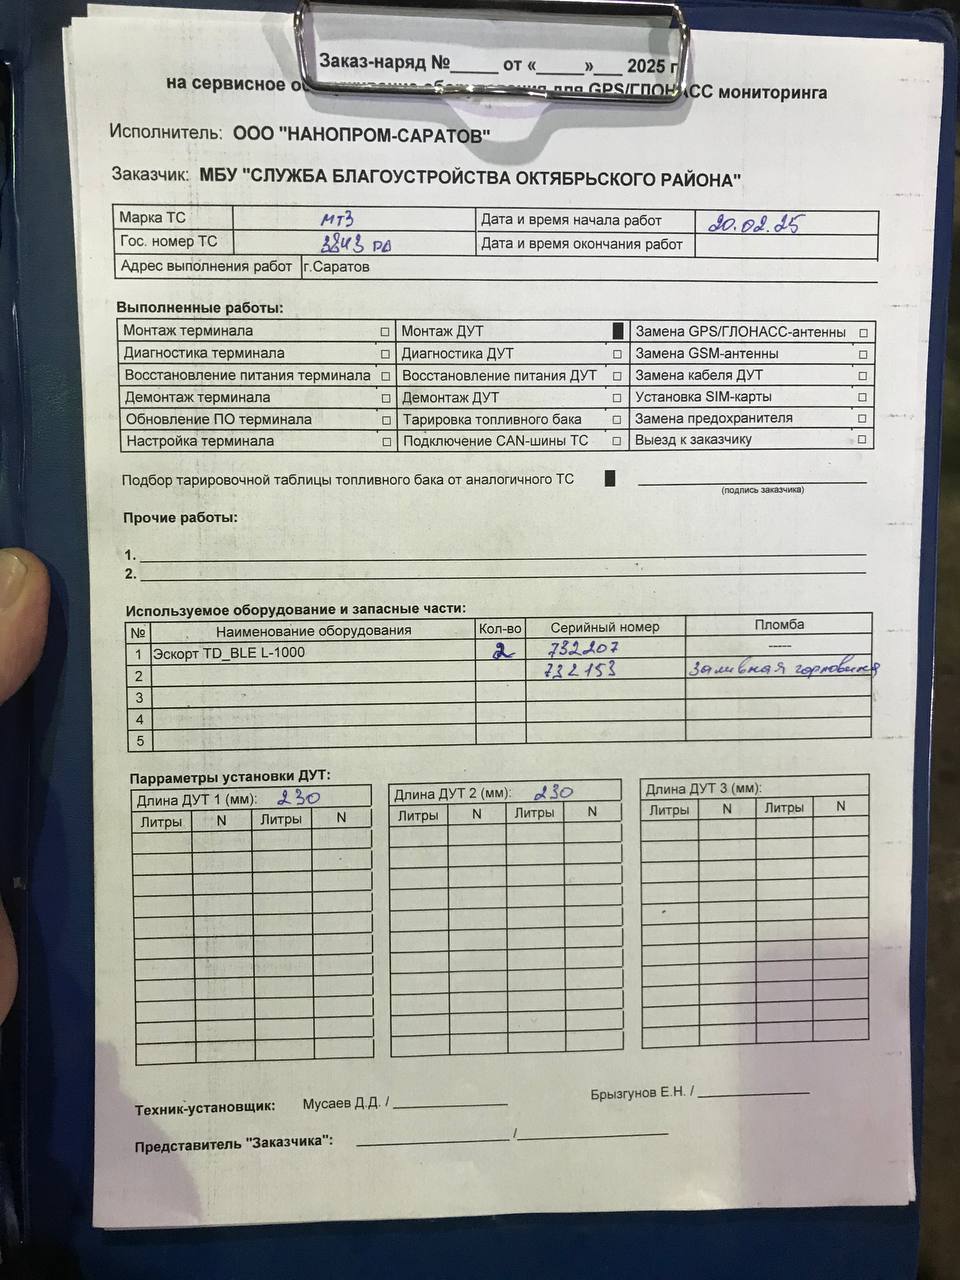 Заказ-наряд №_____ от «_____»___ 2025 г
на сервисное для GPS/ГЛОНАСС мониторинга
Исполнитель: ООО "НАНОПРОМ-САРАТОВ"
Заказчик: МБУ "СЛУЖБА БЛАГОУСТРОЙСТВА ОКТЯБРЬСКОГО РАЙОНА"
Марка ТС МТЗ Дата и время начала работ 20.02.25
Гос. номер ТС 3843 РД Дата и время окончания работ
Адрес выполнения работ г.Саратов
Выполненные работы:
Монтаж терминала □ Монтаж ДУТ ■ Замена GPS/ГЛОНАСС-антенны □
Диагностика терминала □ Диагностика ДУТ □ Замена GSM-антенны □
Восстановление питания терминала □ Восстановление питания ДУТ □ Замена кабеля ДУТ □
Демонтаж терминала □ Демонтаж ДУТ □ Установка SIM-карты □
Обновление ПО терминала □ Тарировка топливного бака □ Замена предохранителя □
Настройка терминала □ Подключение CAN-шины ТС □ Выезд к заказчику □
Подбор тарировочной таблицы топливного бака от аналогичного ТС ■ ____________
(подпись заказчика)
Прочие работы:
1. ____________
2. ____________
Используемое оборудование и запасные части:
№ Наименование оборудования Кол-во Серийный номер Пломба
1 Эскорт TD_BLE L-1000 2 732207 -----
2 732153 Заливная горловина
3
4
5
Парраметры установки ДУТ:
Длина ДУТ 1 (мм): 230 Длина ДУТ 2 (мм): 230 Длина ДУТ 3 (мм):
Литры N Литры N Литры N Литры N Литры N Литры N
Техник-установщик: Мусаев Д.Д. / ____________ Брызгунов Е.Н. / ____________
Представитель "Заказчика": ____________/____________